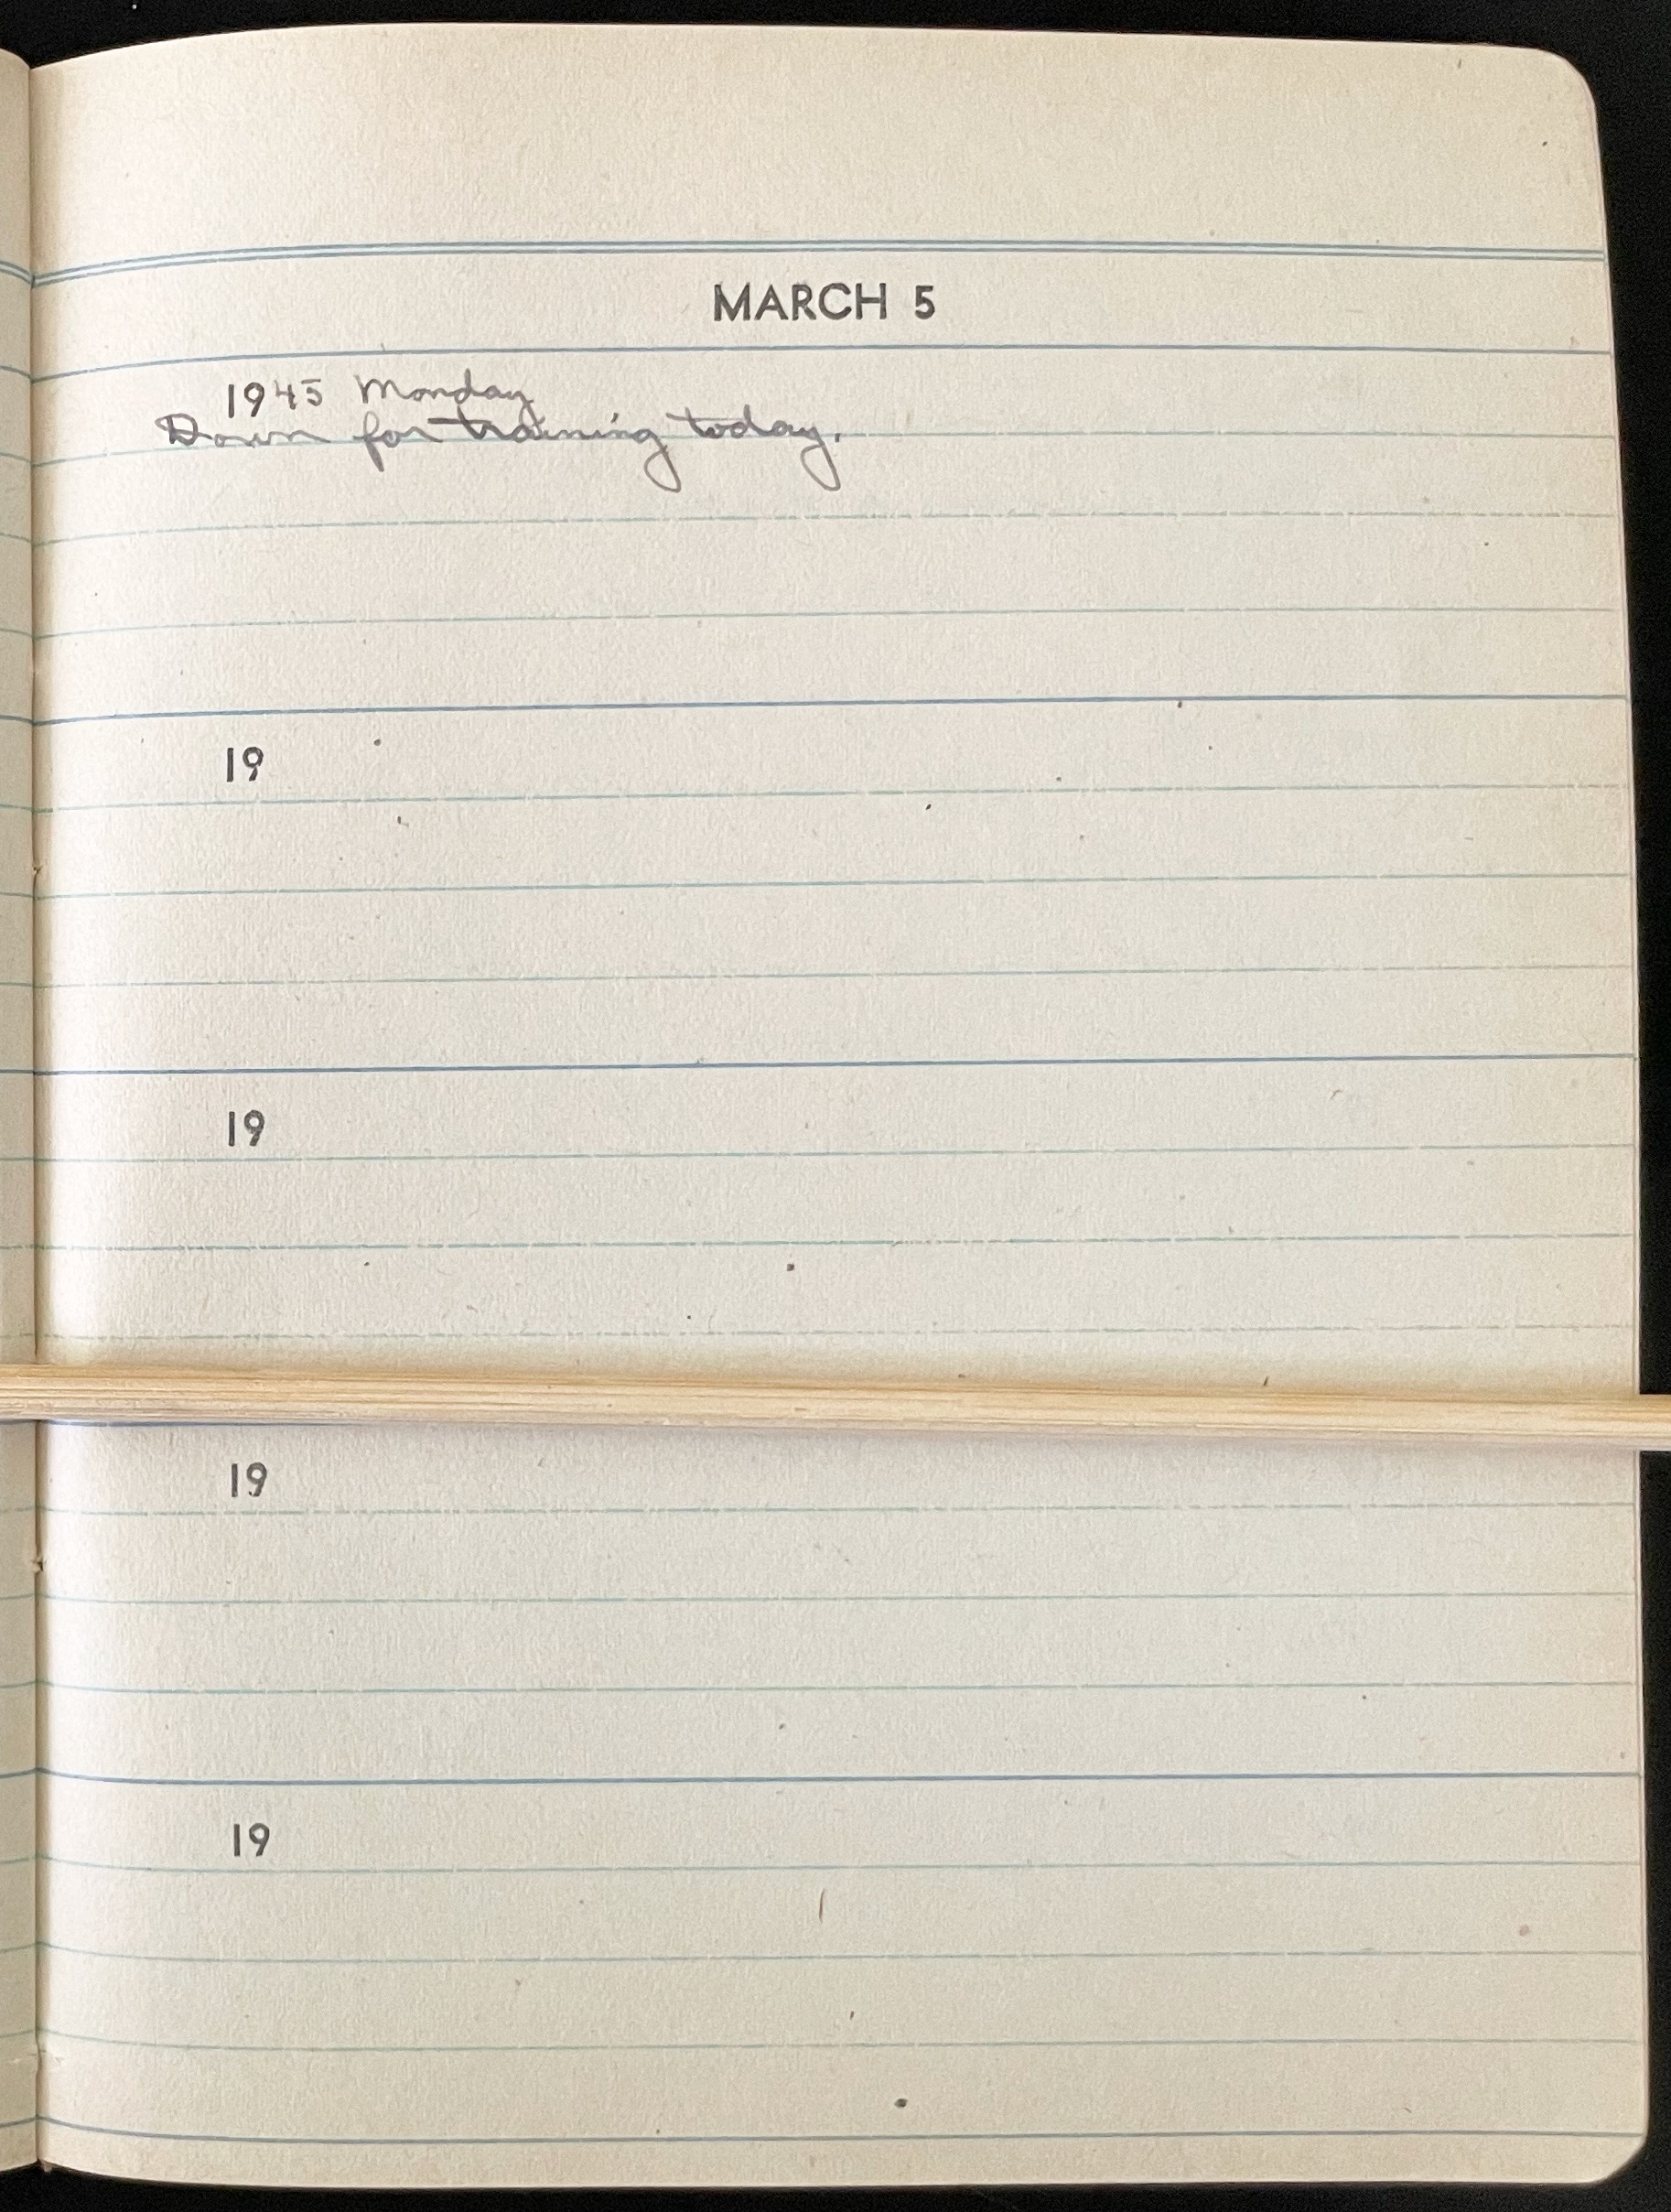 MARCH 5
1945 Monday
Down for training today.
19
19
19
19